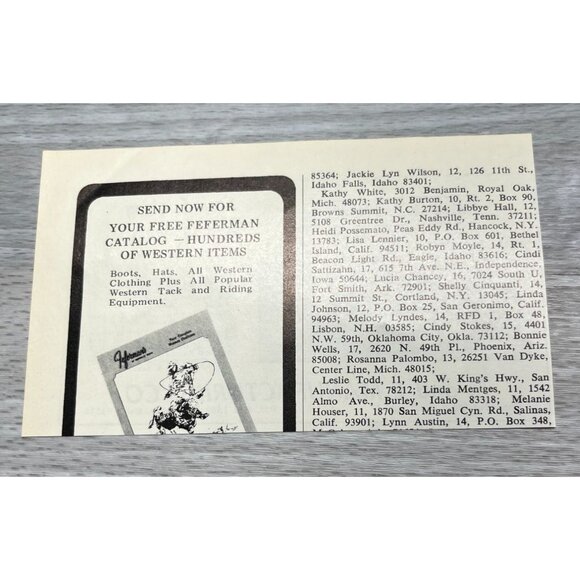 SEND NOW FOR
YOUR FREE FEFERMAN
CATALOG — HUNDREDS
OF WESTERN ITEMS
Boots, Hats, All Western
Clothing Plus All Popular
Western Tack and Riding
Equipment.
85364; Jackie Lyn Wilson, 12, 126 11th St.,
Idaho Falls, Idaho 83401;
Kathy White, 3012 Benjamin, Royal Oak,
Mich. 48073; Kathy Burton, 10, Rt. 2, Box 90,
Browns Summit, N.C. 27214; Libbye Hall, 12,
5108 Greentree Dr., Nashville, Tenn. 37211;
Heidi Possemato, Peas Eddy Rd., Hancock, N.Y.
13783; Lisa Lennier, 10, P.O. Box 601, Bethel
Island, Calif. 94511; Robyn Moyle, 14, Rt. 1,
Beacon Light Rd., Eagle, Idaho 83616; Cindi
Sattizahn, 17, 615 7th Ave. N.E., Independence,
Iowa 50644; Lucia Chancey, 16, 7024 South U,
Fort Smith, Ark. 72901; Shelly Cinquanti, 14,
12 Summit St., Cortland, N.Y. 13045; Linda
Johnson, 12, P.O. Box 25, San Geronimo, Calif.
94963; Melody Lyndes, 14, RFD 1, Box 48,
Lisbon, N.H. 03585; Cindy Stokes, 15, 4401
N.W. 59th, Oklahoma City, Okla. 73112; Bonnie
Wells, 17, 2620 N. 49th Pl., Phoenix, Ariz.
85008; Rosanna Palombo, 13, 26251 Van Dyke,
Center Line, Mich. 48015;
Leslie Todd, 11, 403 W. King's Hwy., San
Antonio, Tex. 78212; Linda Mentges, 11, 1542
Almo Ave., Burley, Idaho 83318; Melanie
Houser, 11, 1870 San Miguel Cyn. Rd., Salinas,
Calif. 93901; Lynn Austin, 14, P.O. Box 348,